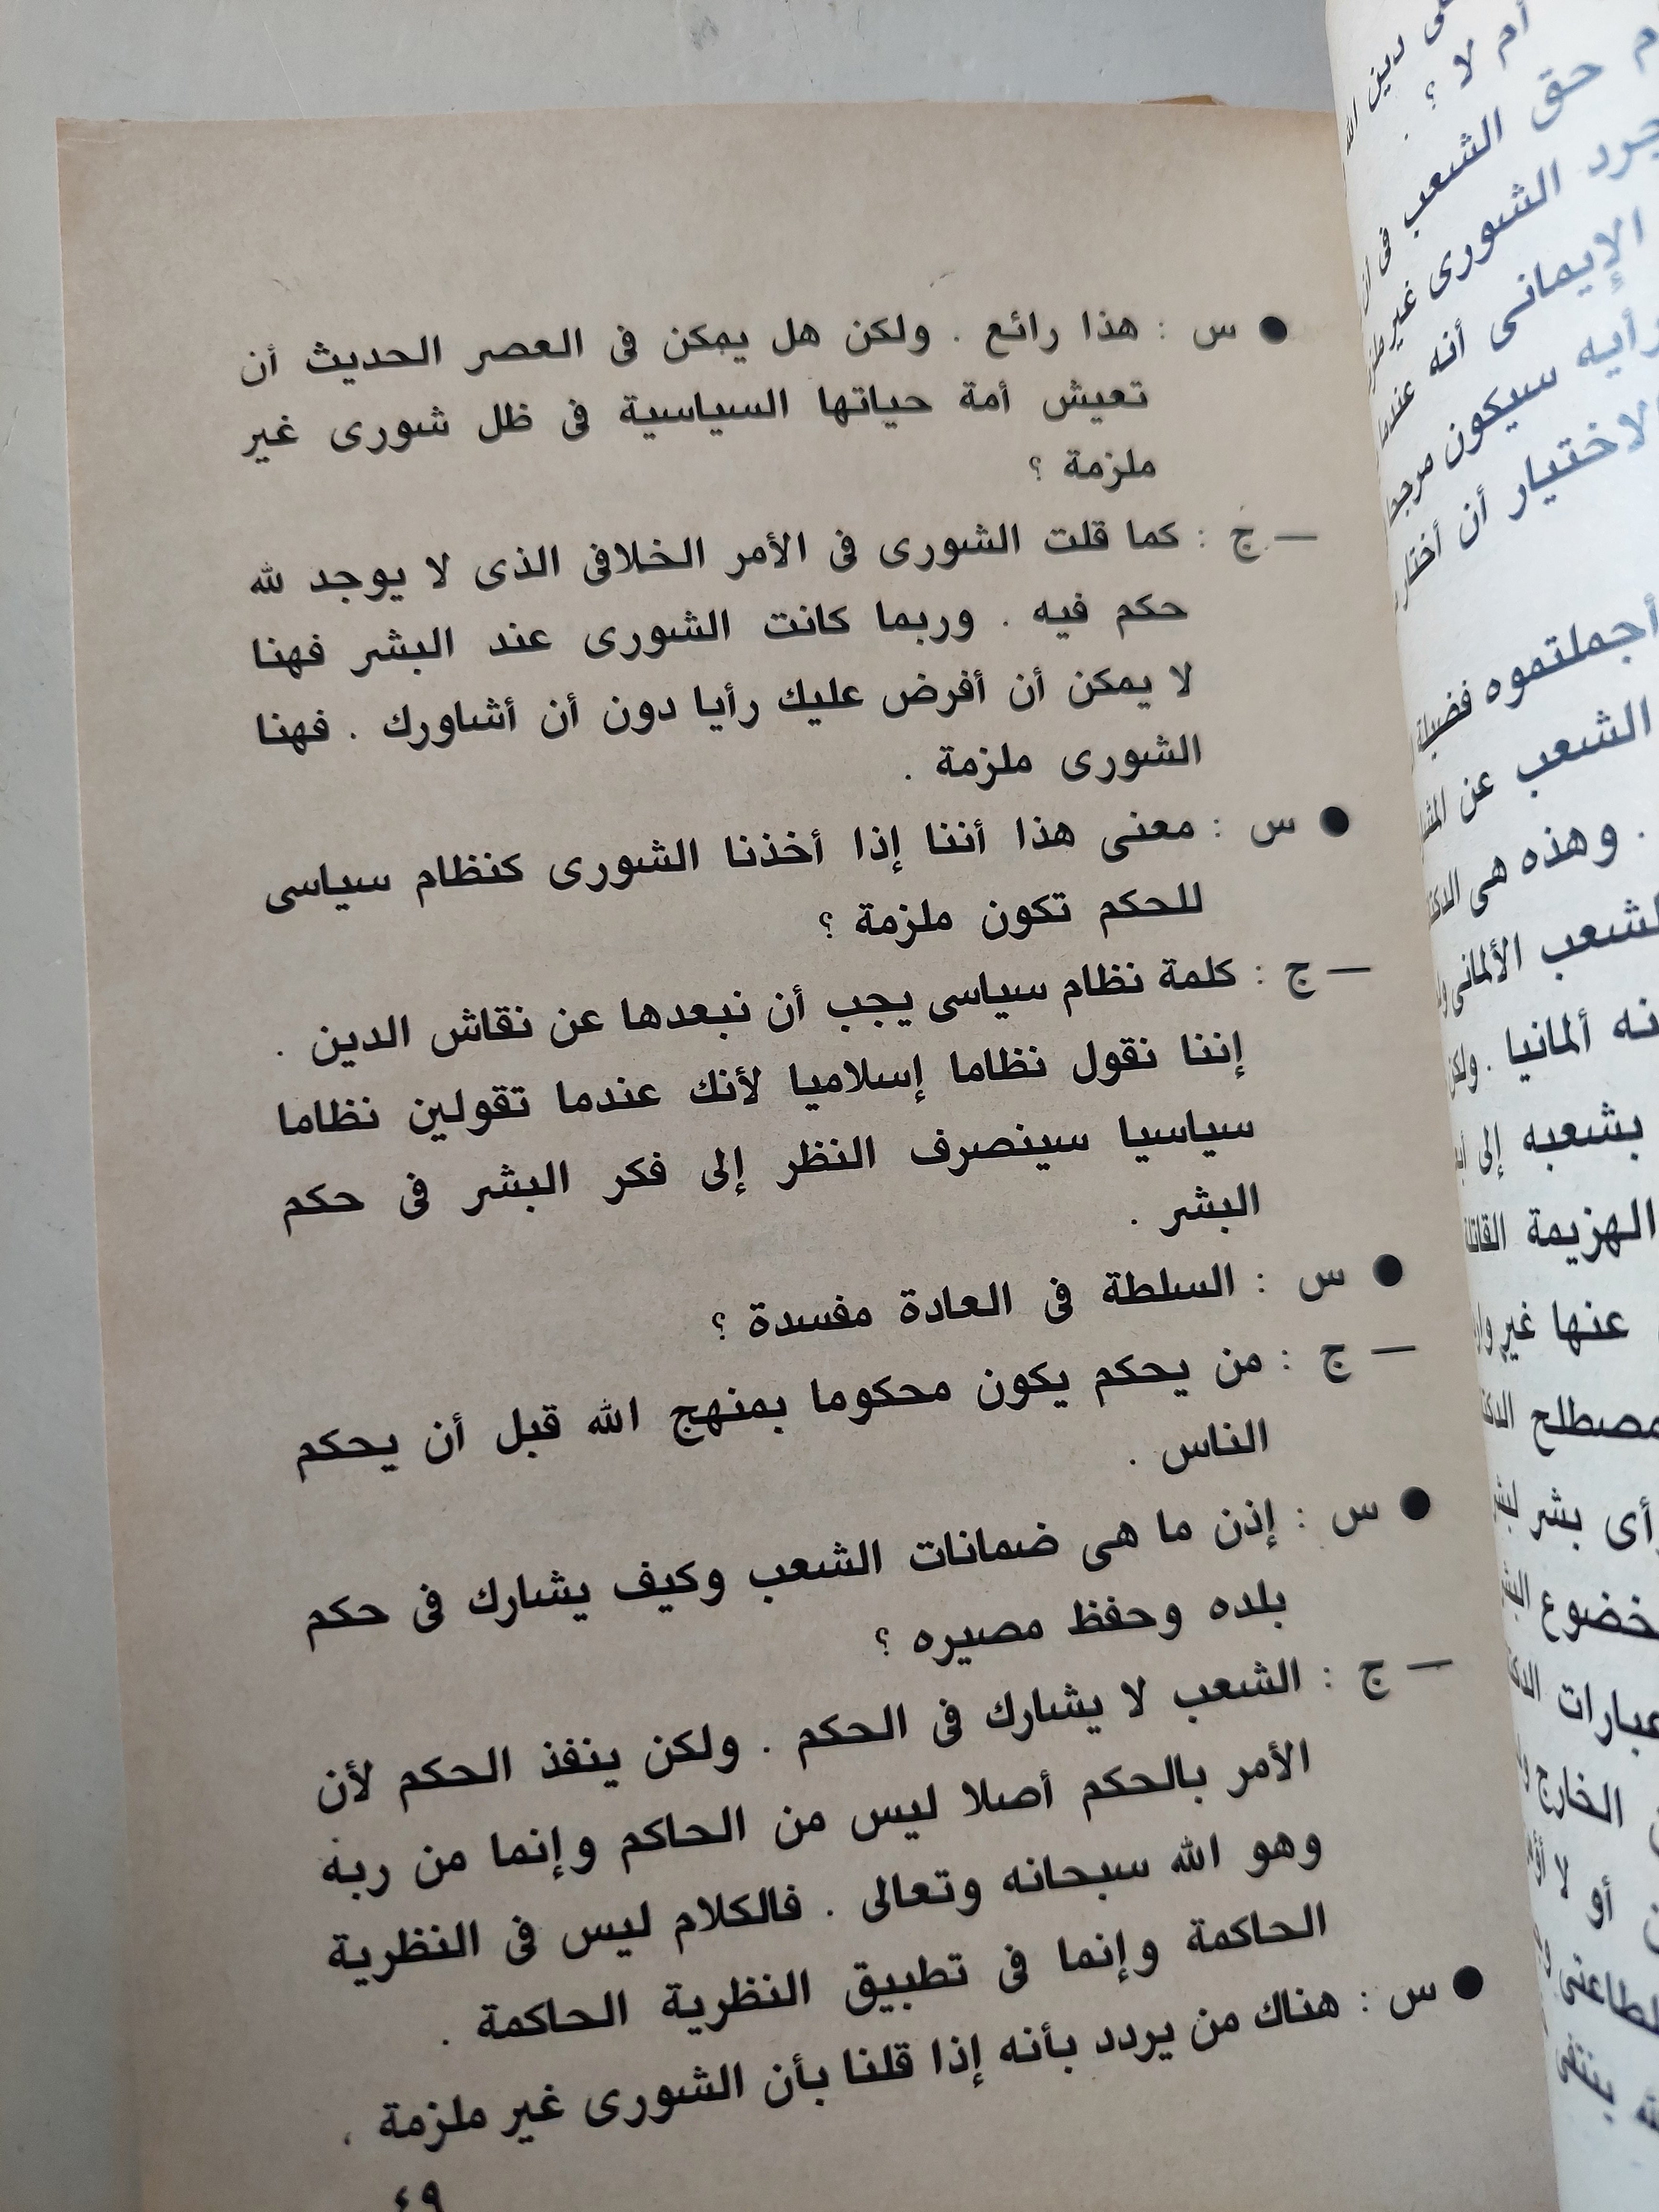 ● س : هذا رائع . ولكن هل يمكن فى العصر الحديث أن
تعيش أمة حياتها السياسية فى ظل شورى غير
ملزمة ؟
— ج : كما قلت الشورى فى الأمر الخلافى الذى لا يوجد لله
حكم فيه . وربما كانت الشورى عند البشر فهنا
لا يمكن أن أفرض عليك رأيا دون أن أشاورك . فهنا
الشورى ملزمة .
● س : معنى هذا أننا إذا أخذنا الشورى كنظام سياسى
للحكم تكون ملزمة ؟
— ج : كلمة نظام سياسى يجب أن نبعدها عن نقاش الدين .
إننا نقول نظاما إسلاميا لأنك عندما تقولين نظاما
سياسيا سينصرف النظر إلى فكر البشر فى حكم
البشر .
● س : السلطة فى العادة مفسدة ؟
— ج : من يحكم يكون محكوما بمنهج الله قبل أن يحكم
الناس .
● س : إذن ما هى ضمانات الشعب وكيف يشارك فى حكم
بلده وحفظ مصيره ؟
— ج : الشعب لا يشارك فى الحكم . ولكن ينفذ الحكم لأن
الأمر بالحكم أصلا ليس من الحاكم وإنما من ربه
وهو الله سبحانه وتعالى . فالكلام ليس فى النظرية
الحاكمة وإنما فى تطبيق النظرية الحاكمة .
● س : هناك من يردد بأنه إذا قلنا بأن الشورى غير ملزمة .
٤٩
دين الله
أم لا ؟
حق الشعب فى
الشورى غير
الإيمانى أنه عندما
رأيه سيكون
الاختيار أن أختار
أجملتموه فضيلة
الشعب عن
. وهذه هى
الشعب الألمانى
ألمانيا . ولكن
بشعبه إلى
الهزيمة القاتلة
عنها غير
مصطلح
رأى بشر
خضوع
عبارات
الخارج
أو لا